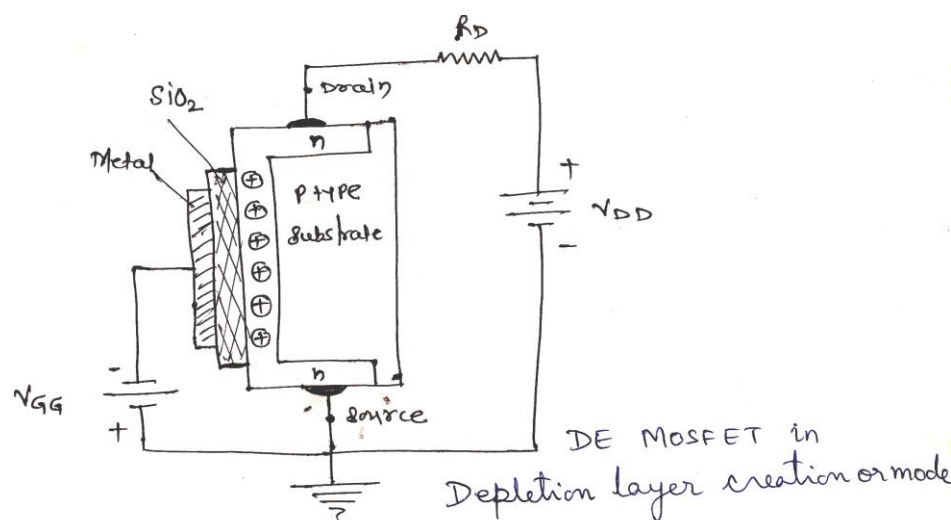 RD
Drain
SiO2
n
Metal
⊕
⊕
⊕
⊕
⊕
⊕
P type
substrate
+
VDD
-
-
VGG
+
n
source
DE MOSFET in
Depletion layer creation or mode